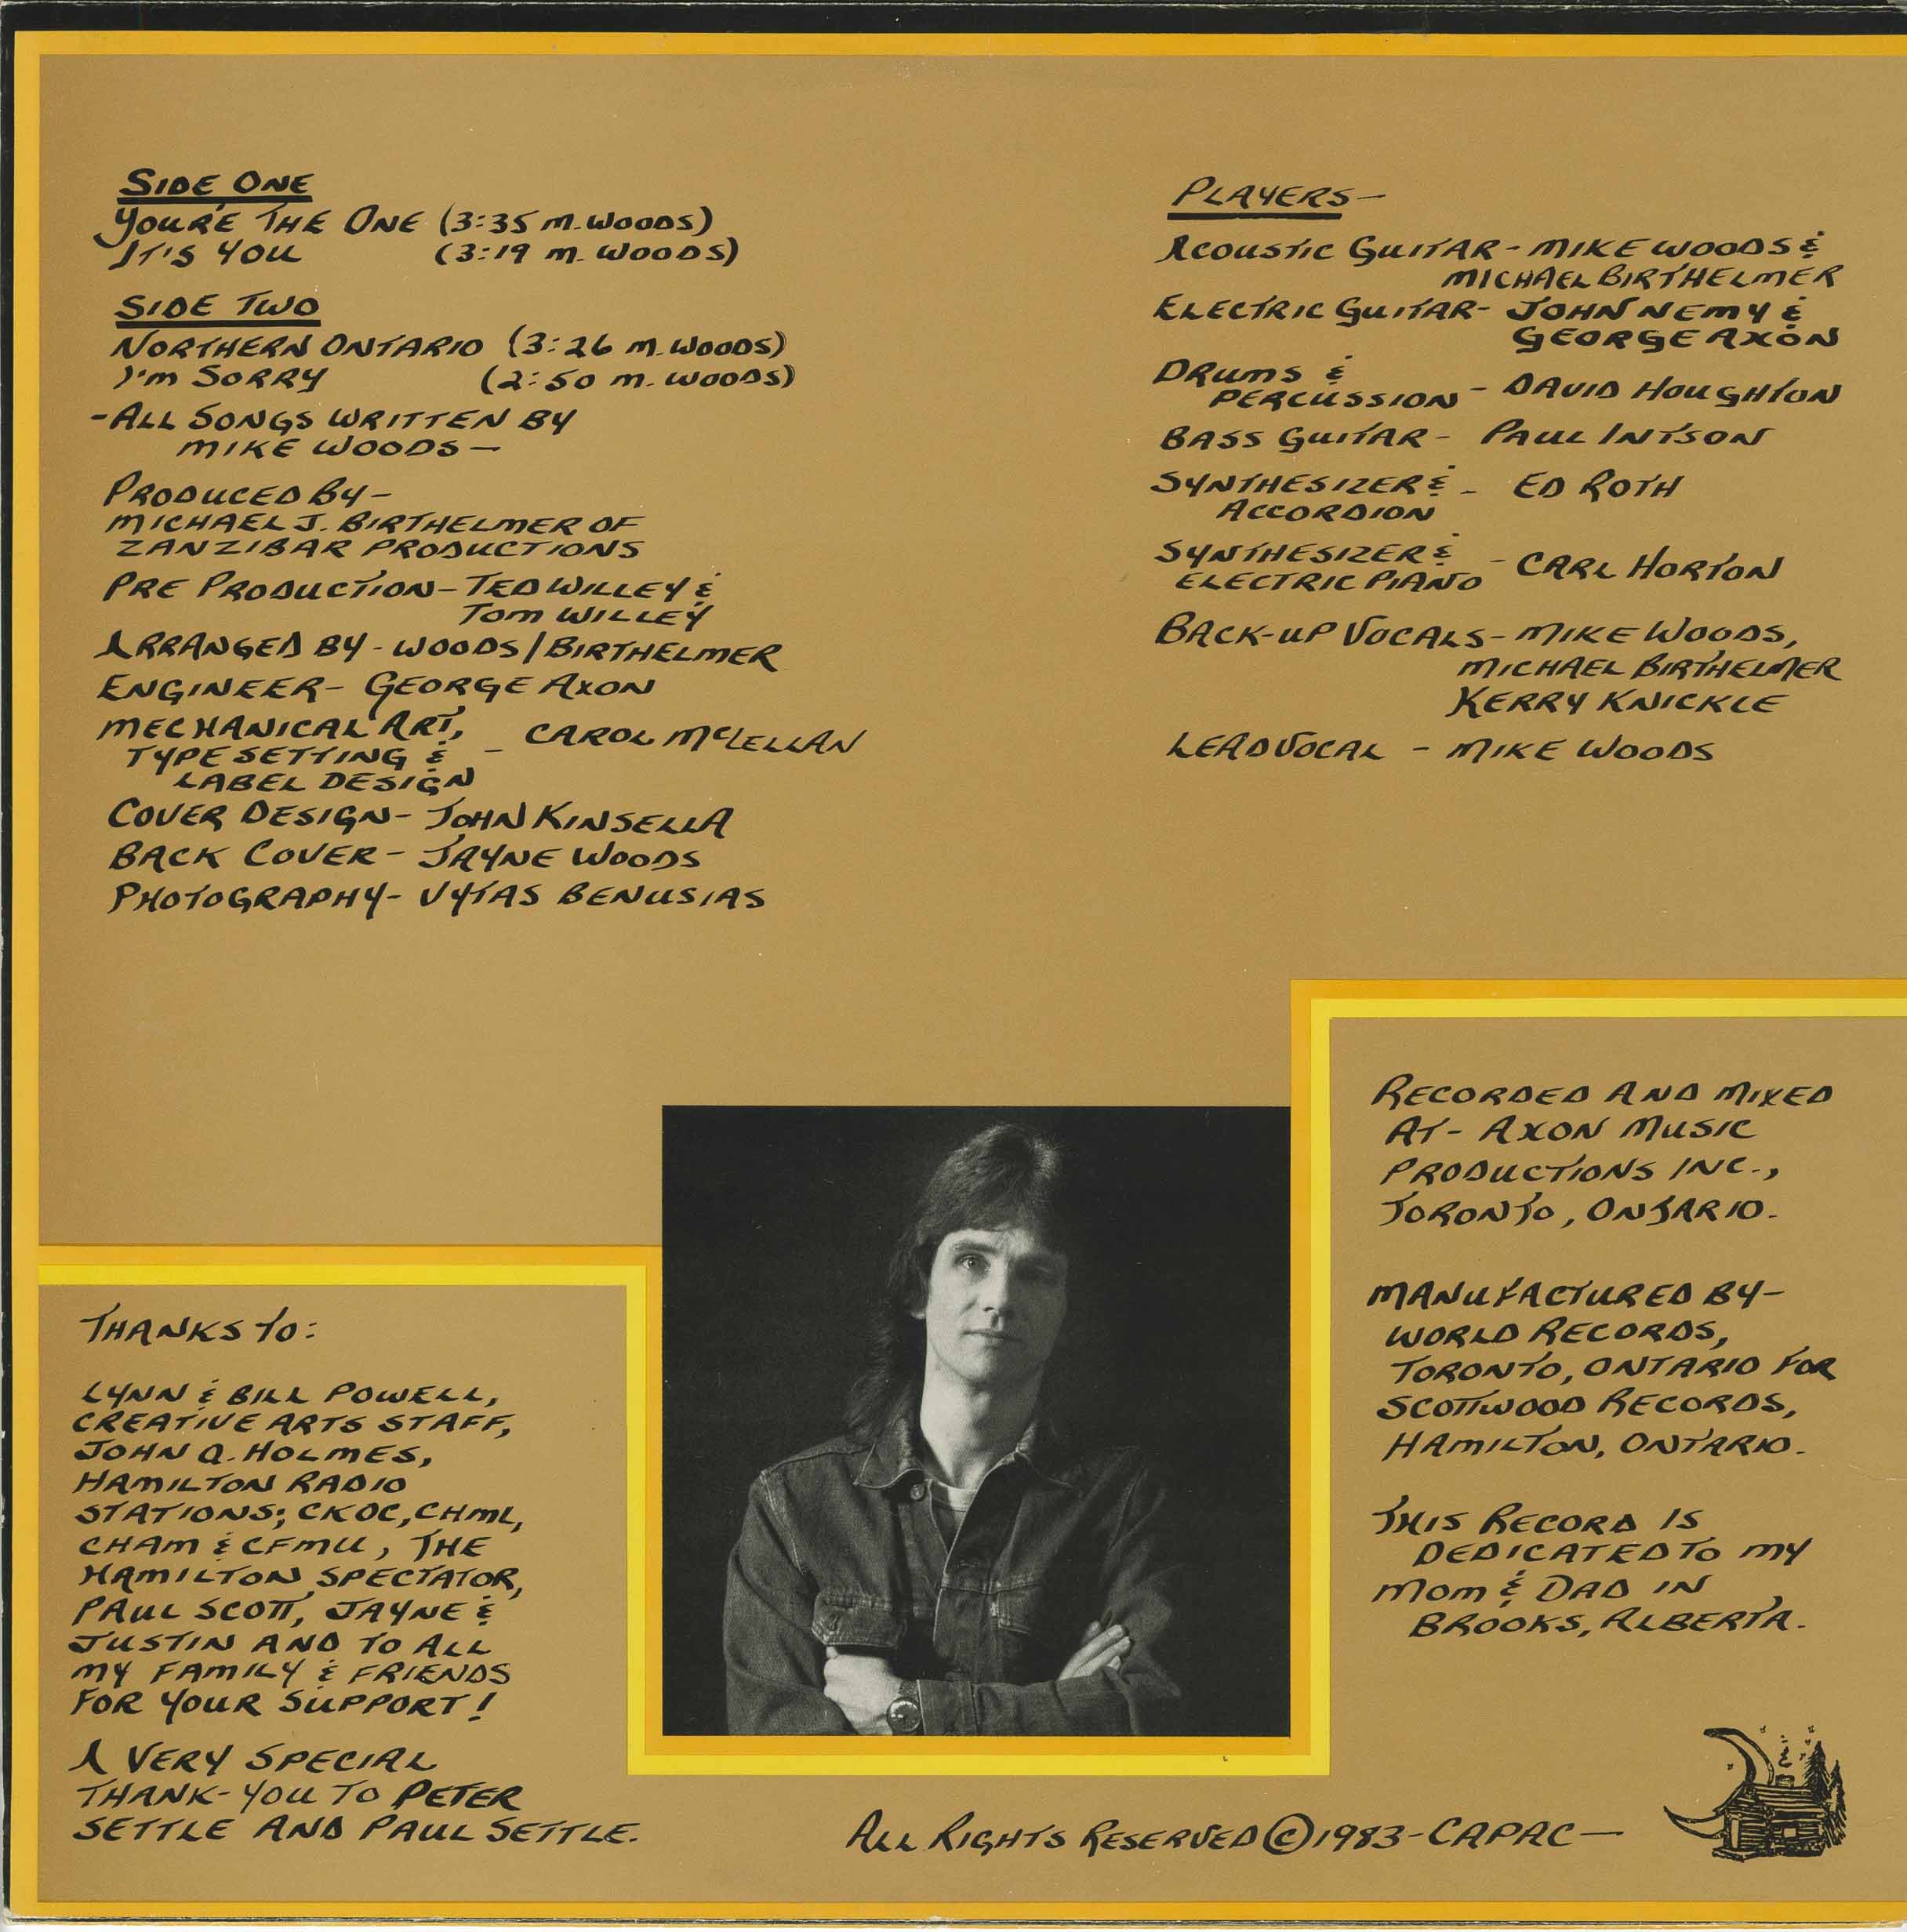 SIDE ONE
YOUR'E THE ONE (3:35 M. WOODS)
IT'S YOU (3:19 M. WOODS)
SIDE TWO
NORTHERN ONTARIO (3:26 M. WOODS)
I'M SORRY (2:50 M. WOODS)
-ALL SONGS WRITTEN BY
MIKE WOODS-
PRODUCED BY-
MICHAEL J. BIRTHELMER OF
ZANZIBAR PRODUCTIONS
PRE PRODUCTION- TED WILLEY &
TOM WILLEY
ARRANGED BY- WOODS/BIRTHELMER
ENGINEER- GEORGE AXON
MECHANICAL ART,
TYPESETTING & - CAROL McLELLAN
LABEL DESIGN
COVER DESIGN- JOHN KINSELLA
BACK COVER- JAYNE WOODS
PHOTOGRAPHY- VYTAS BENUSIAS
PLAYERS-
ACOUSTIC GUITAR- MIKE WOODS &
MICHAEL BIRTHELMER
ELECTRIC GUITAR- JOHN NEMY &
GEORGE AXON
DRUMS &
PERCUSSION - DAVID HOUGHTON
BASS GUITAR- PAUL INTSON
SYNTHESIZER & - ED ROTH
ACCORDION
SYNTHESIZER &
ELECTRIC PIANO - CARL HORTON
BACK-UP VOCALS- MIKE WOODS,
MICHAEL BIRTHELMER
KERRY KNICKLE
LEAD VOCAL - MIKE WOODS
THANKS TO:
LYNN & BILL POWELL,
CREATIVE ARTS STAFF,
JOHN Q. HOLMES,
HAMILTON RADIO
STATIONS; CKOC, CHML,
CHAM & CFMU, THE
HAMILTON SPECTATOR,
PAUL SCOTT, JAYNE &
JUSTIN AND TO ALL
MY FAMILY & FRIENDS
FOR YOUR SUPPORT!
A VERY SPECIAL
THANK-YOU TO PETER
SETTLE AND PAUL SETTLE.
RECORDED AND MIXED
AT- AXON MUSIC
PRODUCTIONS INC.,
TORONTO, ONTARIO.
MANUFACTURED BY-
WORLD RECORDS,
TORONTO, ONTARIO FOR
SCOTTWOOD RECORDS,
HAMILTON, ONTARIO.
THIS RECORD IS
DEDICATED TO MY
MOM & DAD IN
BROOKS, ALBERTA.
ALL RIGHTS RESERVED © 1983-CAPAC-